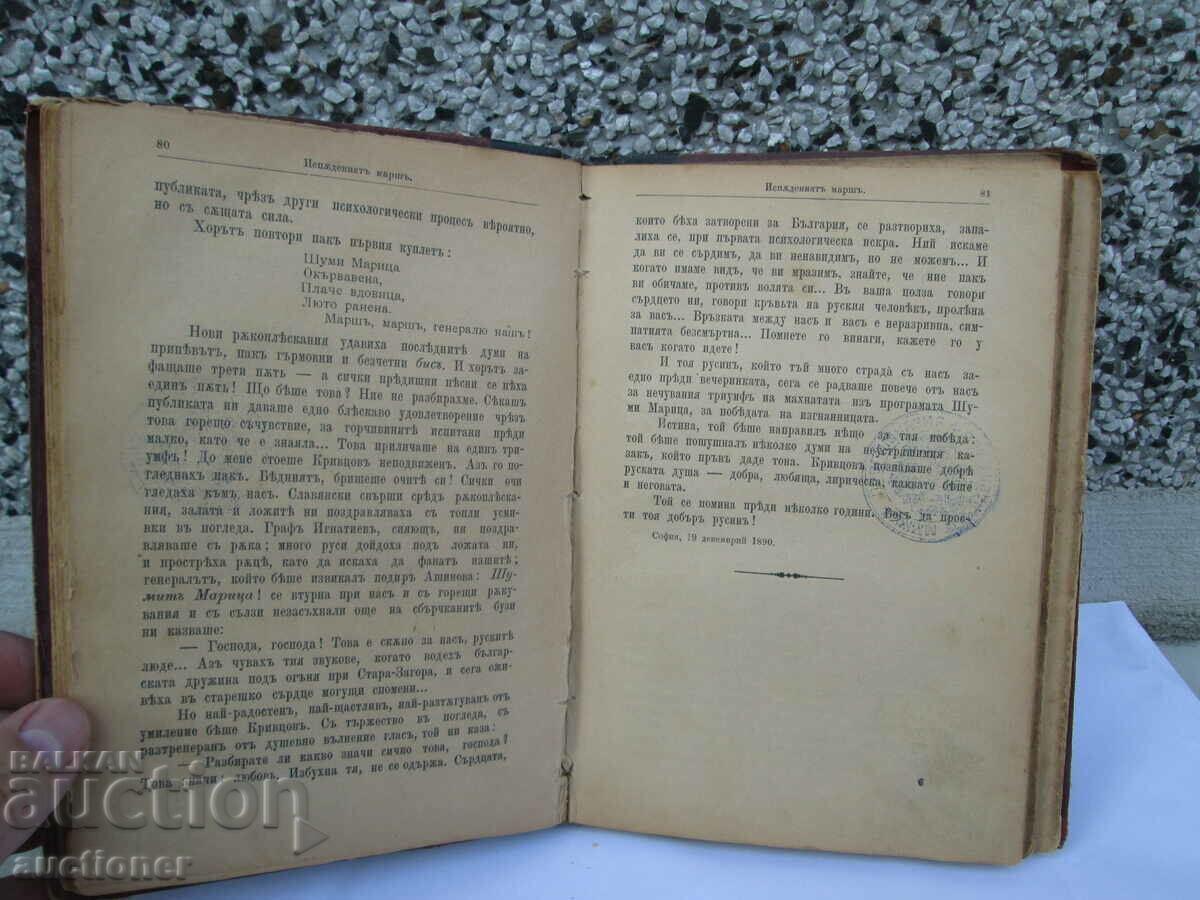 80
Испѫдениятъ маршъ.
публиката, чрѣзъ други психологически процесъ вѣроятно,
но съ сѫщата сила.
Хорътъ повтори пакъ първия куплетъ:
Шуми Марица
Окървавена,
Плаче вдовица,
Люто ранена.
Маршъ, маршъ, генералю нашъ!
Нови рѫкоплѣскания удавиха послѣднитѣ думи на
припѣвътъ, пакъ гърмовни и безчетни бисъ. И хорътъ за-
фащаше трети пѫть — а сички прѣдишни пѣсни се пѣха
единъ пѫть! Що бѣше това? Ние не разбирахме. Сѣкашъ
публиката ни даваше едно блѣскаво удовлетворение чрѣзъ
това горещо съчувствие, за горчивинитѣ испитани прѣди
малко, като че е знаяла... Това приличаше на единъ три-
умфъ! До мене стоеше Кривцовъ неподвиженъ. Азъ го по-
гледнахъ пакъ. Бѣдниятъ, бришеше очитѣ си! Сички очи
гледаха къмъ насъ. Славянски снърши срѣдъ рѫкоплѣска-
ния, залата и ложитѣ ни поздравляваха съ топли усми-
вки въ погледа. Графъ Игнатиевъ, сияющъ, ни поздра-
вляваше съ рѫка; много руси дойдоха подъ ложата ни,
и прострѣха рѫцѣ, като да искаха да фанатъ нашитѣ;
генералътъ, който бѣше извикалъ подиръ Ашинова: Шу-
митъ Марица! се втурна при насъ и съ горещи рѫку-
вания и съ сълзи незасъхнали още на сбърчканитѣ бузи
ни казваше:
— Господа, господа! Това е скѫпо за насъ, рускитѣ
люде... Азъ чувахъ тия звукове, когато водехъ българ-
ската дружина подъ огъня при Стара-Загора, и сега ожи-
вѣха въ старешко сърдце могущи спомени...
Но най-радостенъ, най-щастливъ, най-разтѫгувать отъ
умиление бѣше Кривцовъ. Съ тържество въ погледа, съ
разтреперанъ отъ душевно вълнение гласъ, той ни каза:
— Разбирате ли какво значи сично това, господа?
Това значи: любовь. Избухна тя, не се одържа. Сърдцата,
Испѫдениятъ маршъ.
81
които бѣха затворени за България, се разтвориха, запа-
лиха се, при първата психологическа искра. Ний искаме
да ви се сърдимъ, да ви ненавидимъ, но не можемъ... И
когато имаме видъ, че ви мразимъ, знайте, че ние пакъ
ви обичаме, противъ волята си... Въ ваша полза говори
сърдцето ни, говори кръвьта на руския человѣкъ, пролѣна
за васъ... Връзката между насъ и васъ е неразривна, сим-
патията безсмъртна... Помнете го винаги, кажете го у
васъ когато идете!
И тоя русинъ, който тъй много страда съ насъ за-
едно прѣди вечеринката, сега се радваше повече отъ насъ
за нечувания триумфъ на махнатата изъ програмата Шу-
ми Марица, за побѣдата на изгнанницата.
Истина, той бѣше направилъ нѣщо за тая побѣда:
той бѣше пошушналъ нѣколко думи на неустрашимия ка-
закъ, който пръвъ даде това. Кривцовъ познаваше добрѣ
руската душа — добра, любяща, лирическа, каквато бѣше
и неговата.
Той се помина прѣди нѣколко години. Богъ да прос-
ти тоя добъръ русинъ!
София, 19 декемврий 1890.
6
BALKAN
auction
auctioner